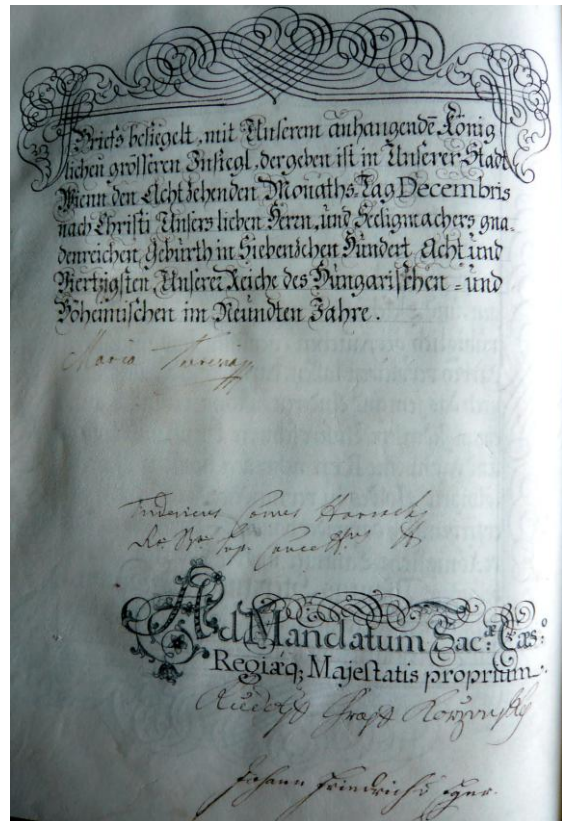 Briefs besiegelt, mit Unserem anhangendē König
lichen grösseren Insiegl, der geben ist in Unserer Stadt
Wienn den Achtzehenden Monaths Tag Decembris
nach Christi Unsers lieben Heren, und Seeligmachers gna„
denreichen Gebürth in Siebenzehen Hundert, Acht und
Viertzigsten Unserer Reiche des Hungarischen = und
Böheimischen im Neündten Jahre.
Maria Theresia
Fridericus Comes Harrach
Ad Mandatum Sac:æ Cæs:o
Regiæq; Majestatis proprium.
Rudolph Graff Korzensky
Johann Friedrich Eger.